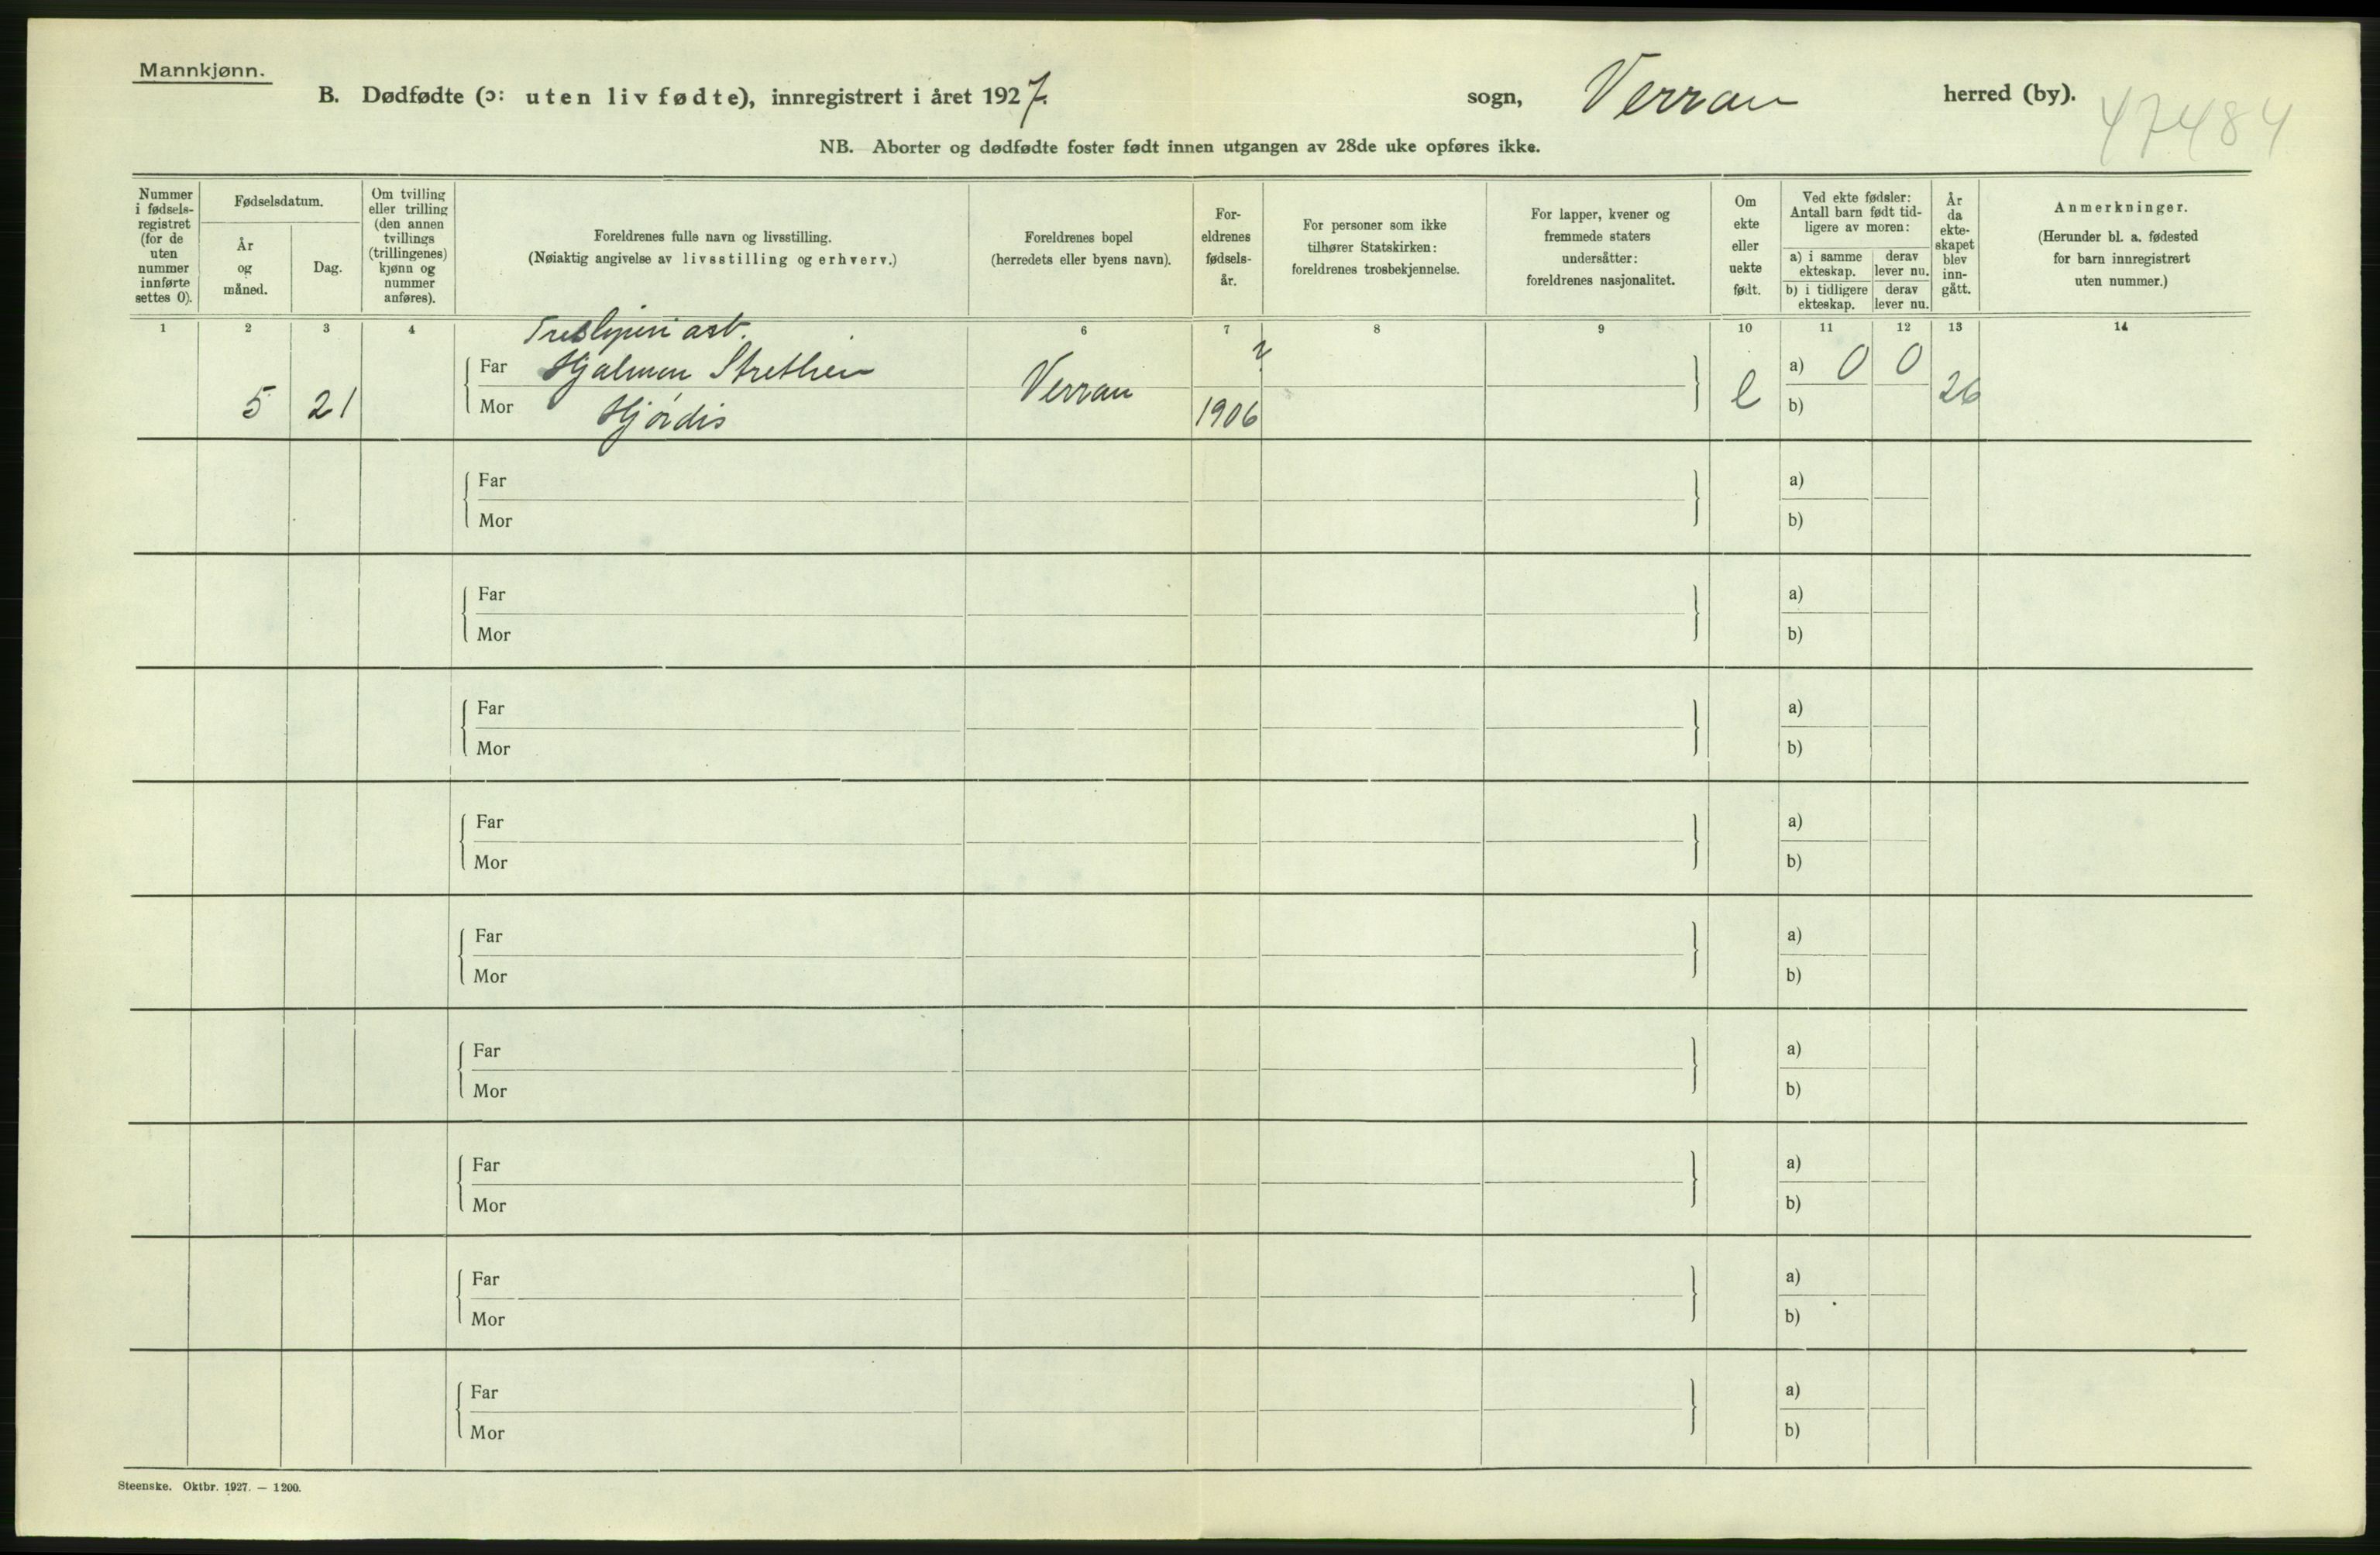 Mannkjønn.
B. Dødfødte (ɔ: uten liv fødte), innregistrert i året 1927.
sogn, Verran herred (by).
47484
NB. Aborter og dødfødte foster født innen utgangen av 28de uke opføres ikke.
Nummer
i fødsels-
registret
(for de
uten
nummer
innførte
settes 0).
Fødselsdatum.
År
og
måned.
Dag.
Om tvilling
eller trilling
(den annen
tvillings
(trillingenes)
kjønn og
nummer
anføres).
Foreldrenes fulle navn og livsstilling.
(Nøiaktig angivelse av livsstilling og erhverv.)
Foreldrenes bopel
(herredets eller byens navn).
For-
eldrenes
fødsels-
år.
For personer som ikke
tilhører Statskirken:
foreldrenes trosbekjennelse.
For lapper, kvener og
fremmede staters
undersåtter:
foreldrenes nasjonalitet.
Om
ekte
eller
uekte
født.
Ved ekte fødsler:
Antall barn født tid-
ligere av moren:
a) i samme
ekteskap.
derav
lever nu.
b) i tidligere
ekteskap.
derav
lever nu.
År
da
ekte-
skapet
blev
inn-
gått.
Anmerkninger.
(Herunder bl. a. fødested
for barn innregistrert
uten nummer.)
1 2 3 4 6 7 8 9 10 11 12 13 14
Tresliperi arb.
Far Hjalmar ?
Mor Hjørdis
5 21
Verran
1906
e
a) 0 0
b)
26
Far
Mor
a)
b)
Far
Mor
a)
b)
Far
Mor
a)
b)
Far
Mor
a)
b)
Far
Mor
a)
b)
Far
Mor
a)
b)
Far
Mor
a)
b)
Far
Mor
a)
b)
Far
Mor
a)
b)
Steenske. Oktbr. 1927. — 1200.